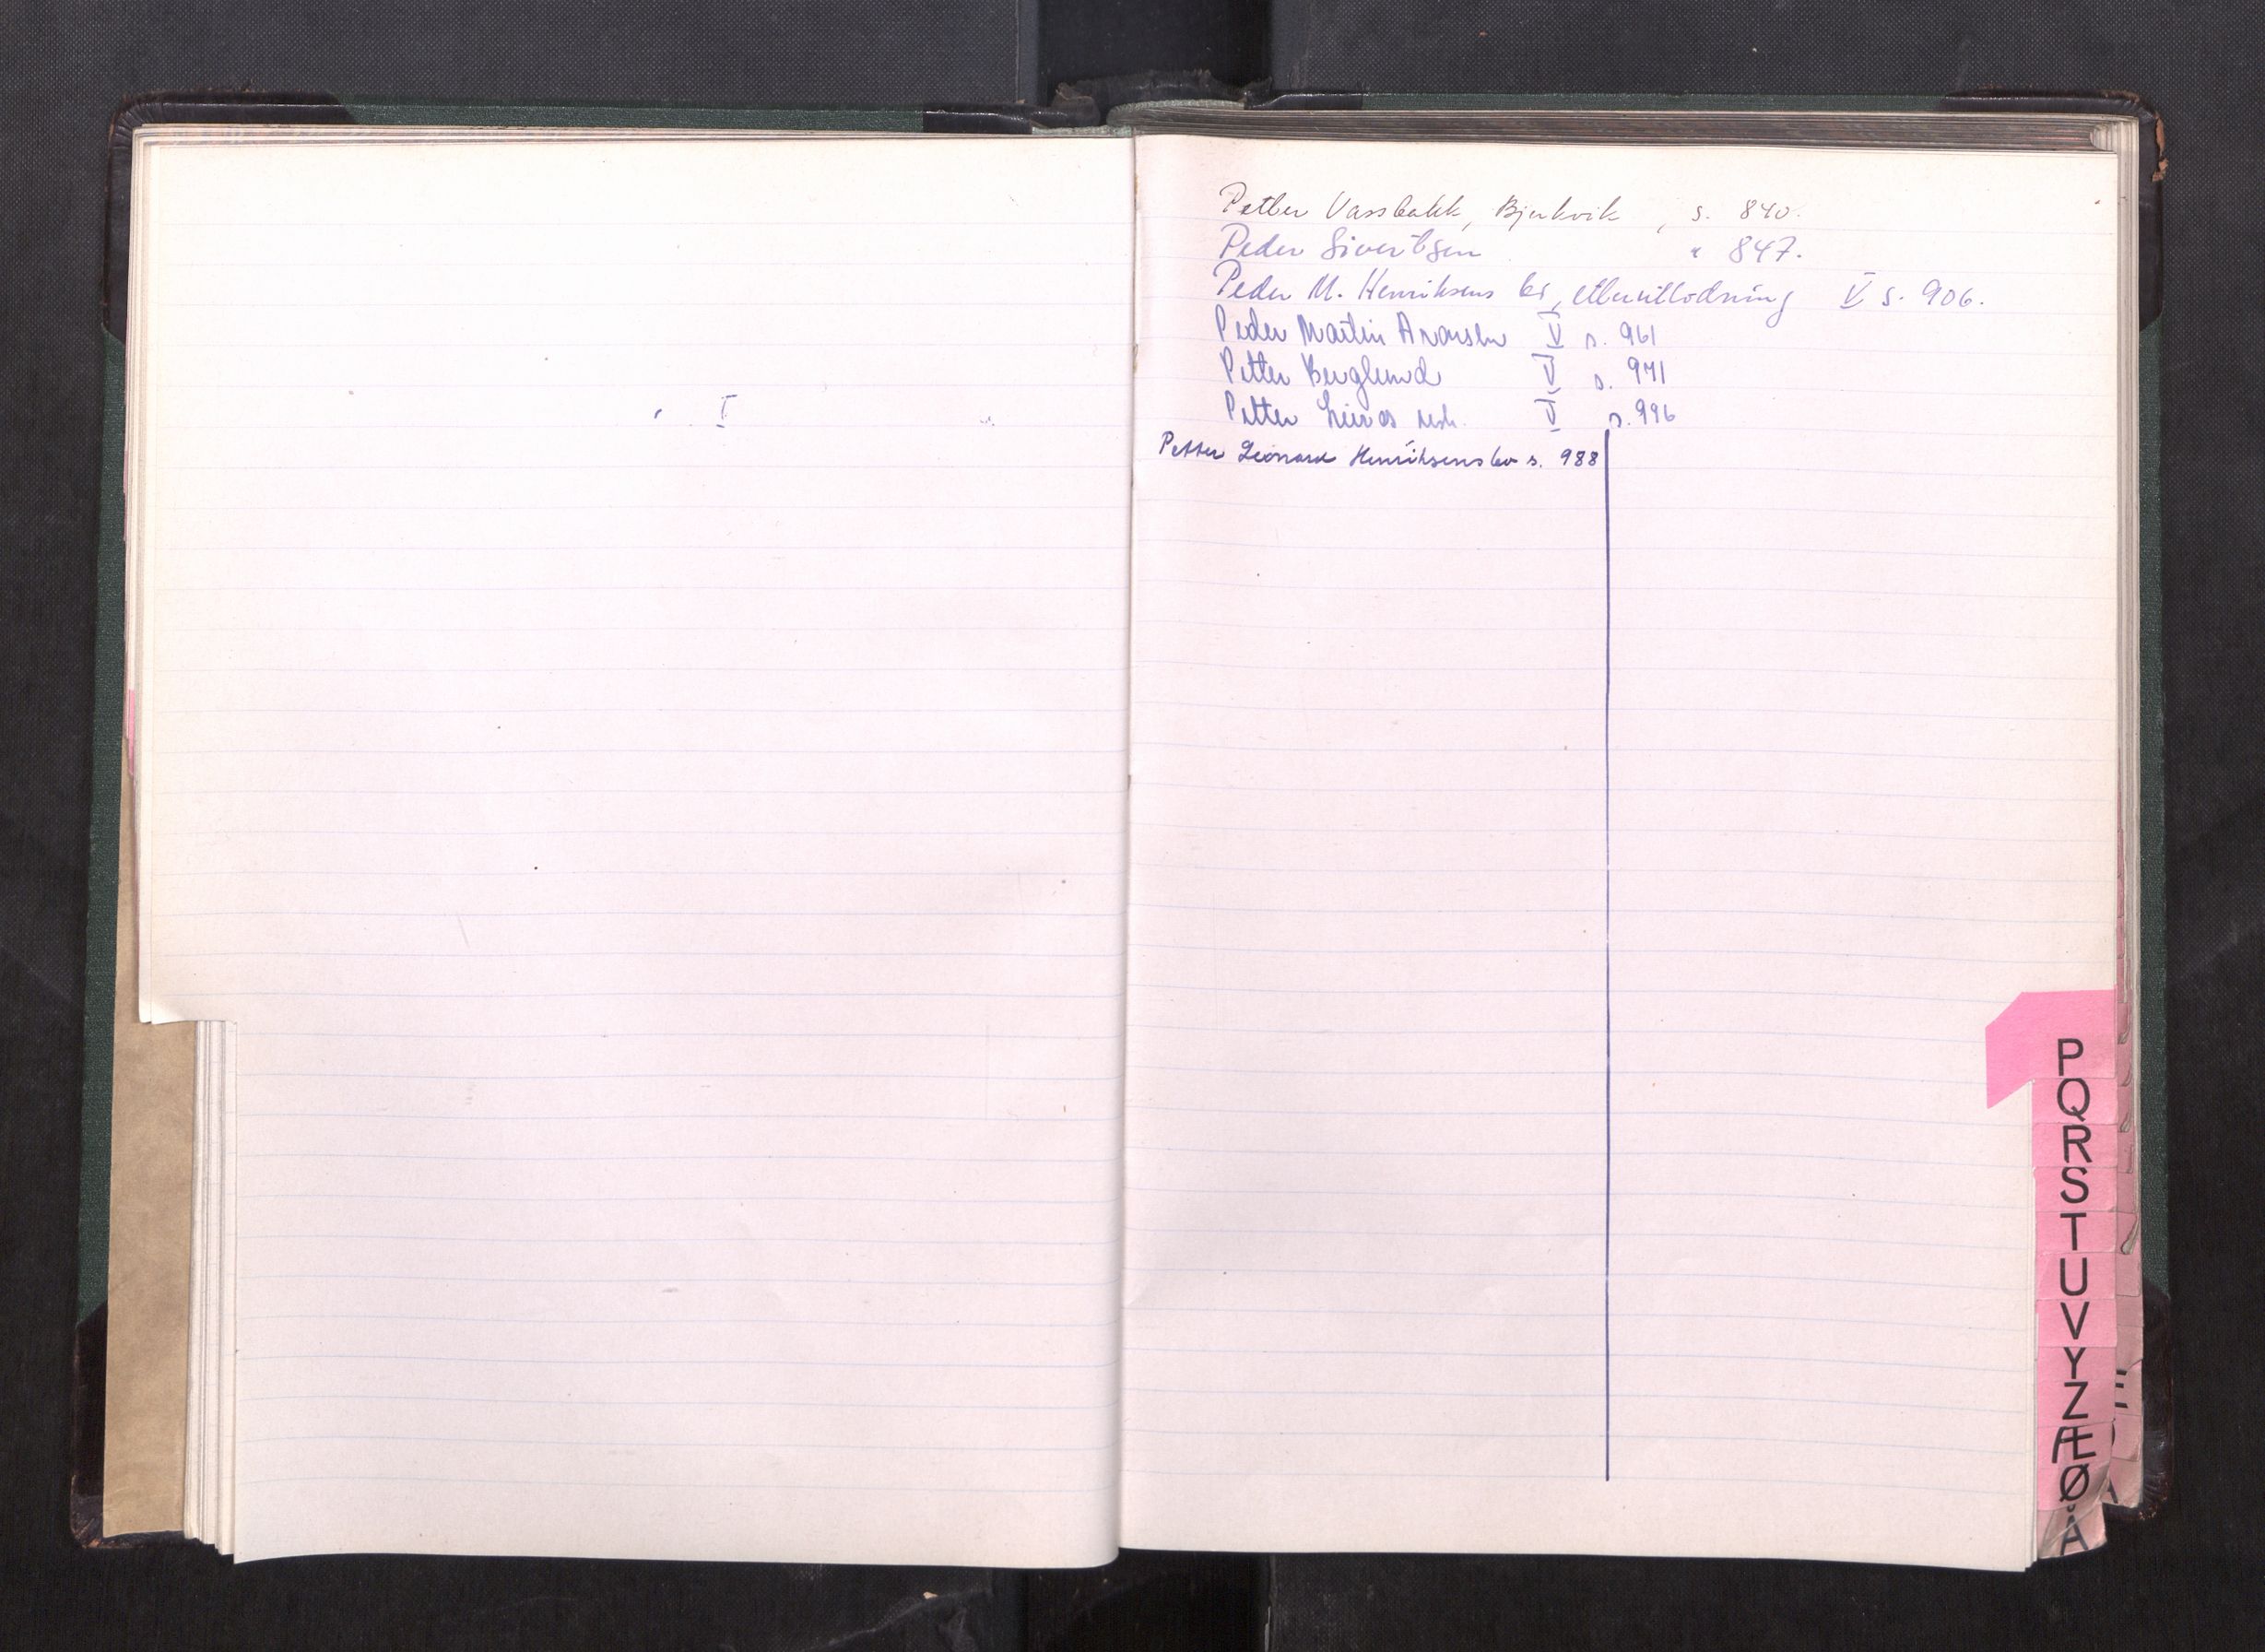 Petter Vassbakk, Bjerkvik, s. 840.
Peder Sivertsen " 847.
Peder M. Henriksens bo, etterutlodning V s. 906.
Peder Martin Aronsen V s. 961
Petter Berglund V s. 971
Petter V s. 996
Petter Leonard Henriksens bo s. 988
P
Q
R
S
T
U
V
Y
Z
Æ
Ø
Å